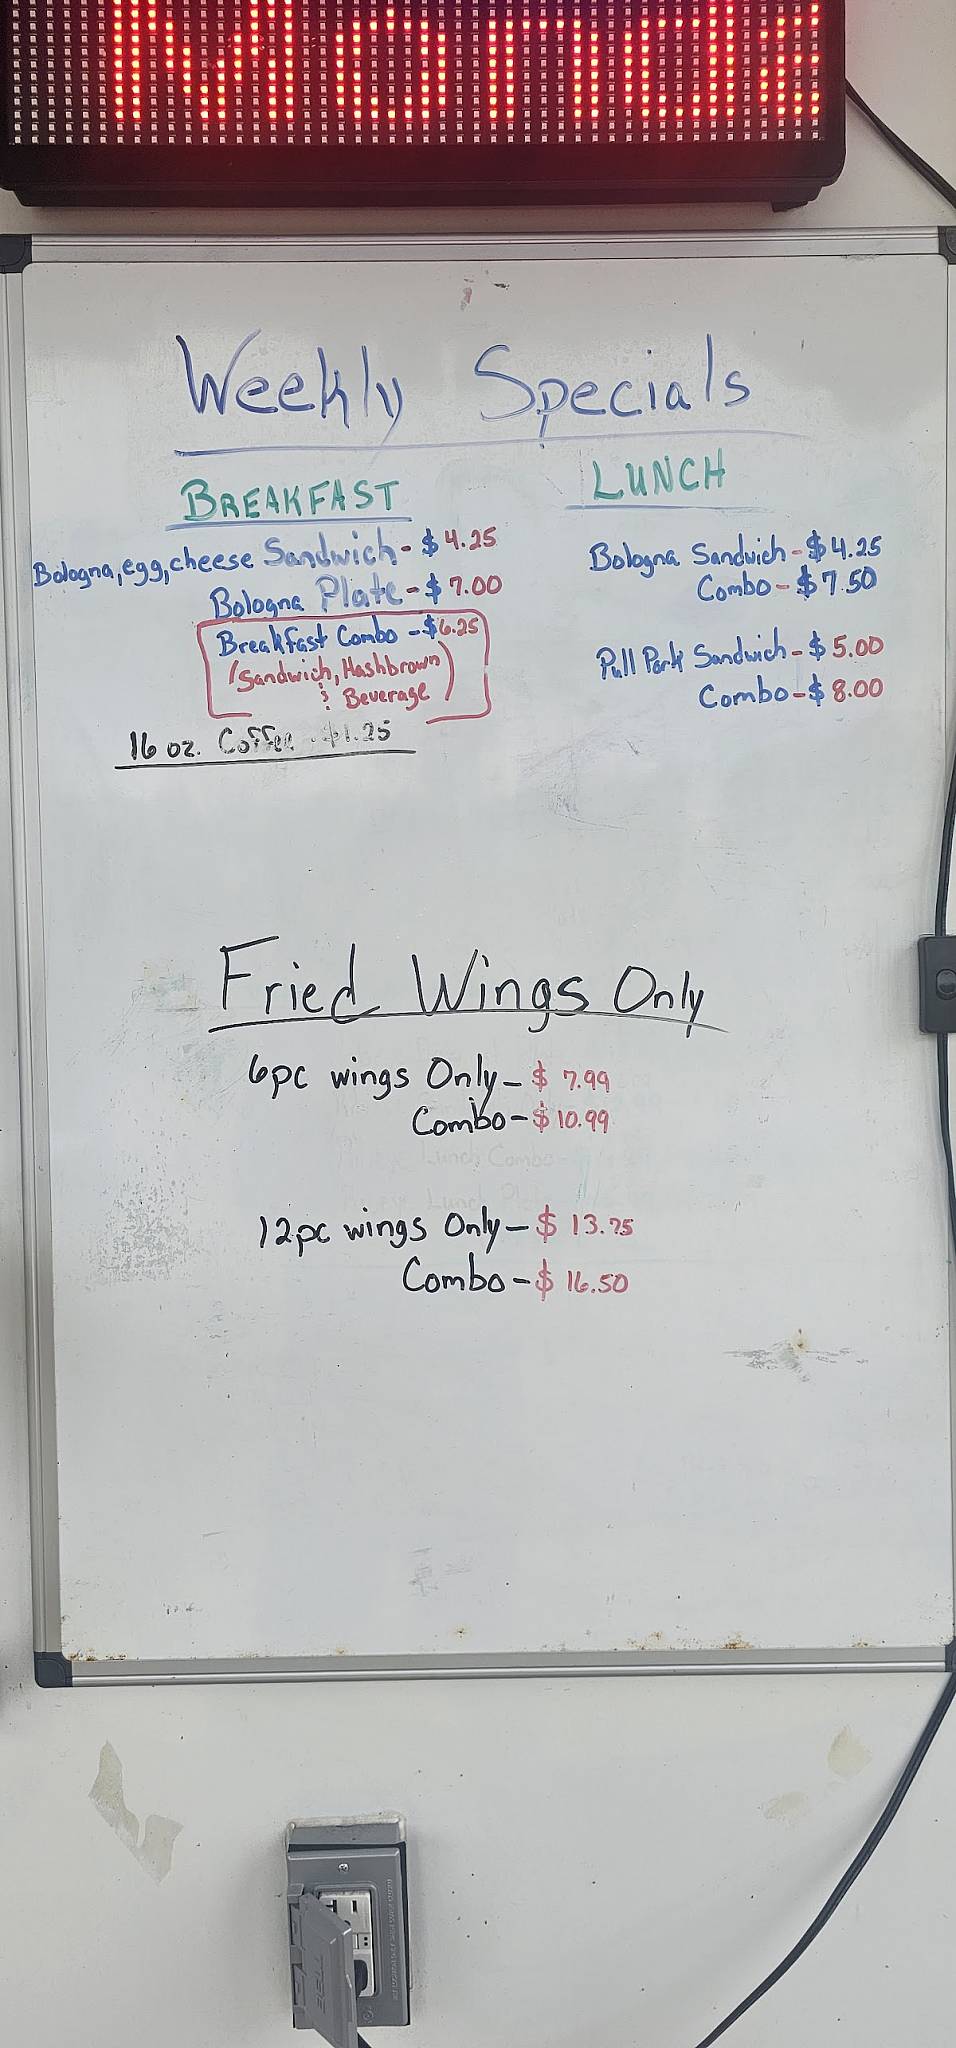 Weekly Specials
BREAKFAST
Bologna, egg, cheese Sandwich - $4.25
Bologna Plate - $7.00
Breakfast Combo - $6.25
(Sandwich, Hashbrown
& Beverage)
16 oz. Coffee - $1.25
LUNCH
Bologna Sandwich - $4.25
Combo - $7.50
Pull Pork Sandwich - $5.00
Combo - $8.00
Fried Wings Only
6pc wings Only - $7.99
Combo - $10.99
Lunch Combo
Lunch
12pc wings Only - $13.75
Combo - $16.50